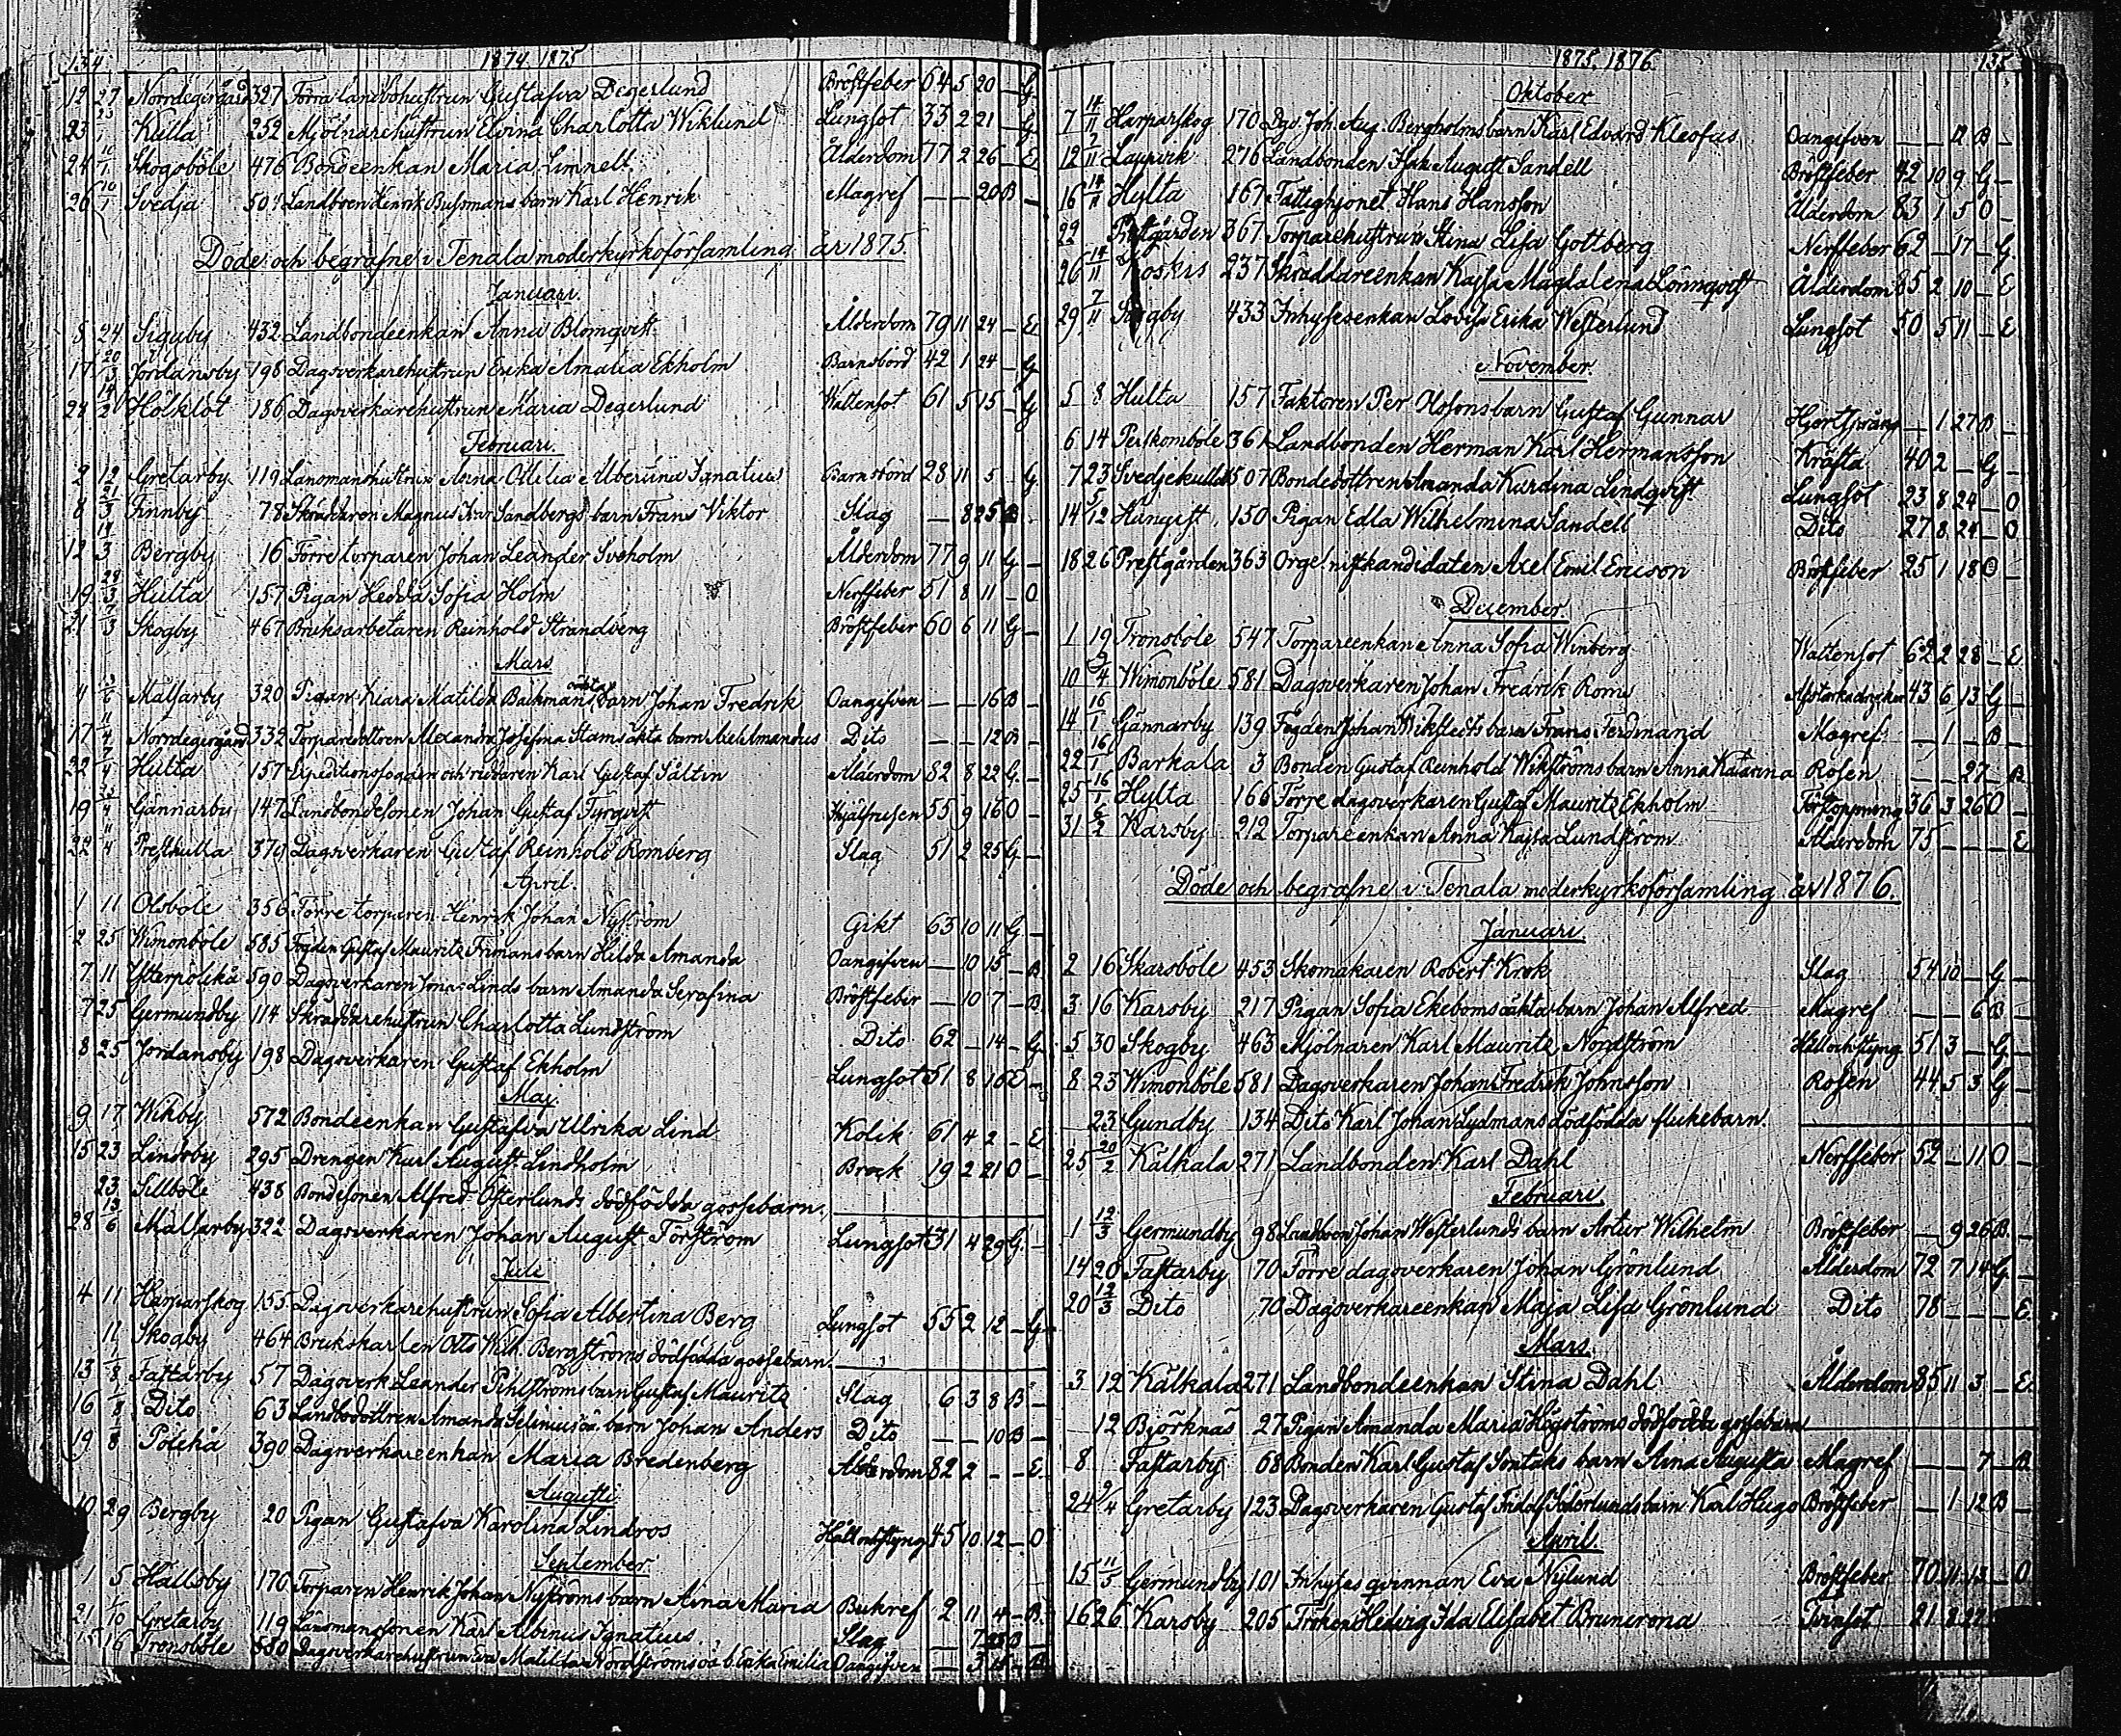 134 1874. 1875
12 27 Norrdegergård 327 Förra landbohustrun Gustafva Degerlund Bröstfeber 64 5 20 _ G
23 Kulla 252 Mjölnarehustrun Elvina Charlotta Wiklund Lungsot 35 2 21 _ G
24 10/1 Skogsböle 476 Bondeenkan Maria Linnell Ålderdom 77 2 26 _ E
26 10/1 Svedja 501 Landboen Henrik Bussmans barn Karl Henrik Magref _ _ 20 B _
Döde och begrafne i Tenala moderkyrkoförsamling år 1875.
Januari.
8 24 Sigaby 432 Landbondeenkan Anna Blomqvist Ålderdom 79 11 24 _ E
17 20/3 Jordansby 198 Dagsverkarehustrun Erika Amalia Ekholm Barnsbörd 42 1 24 _ G
28 14/2 Holklöt 186 Dagsverkarehustrun Maria Degerlund Wattensot 61 5 15 _ G
Februari.
2 12 Gretarby 119 Länsmanshustrun Anna Otilia Albertina Ignatius Barnsbörd 28 11 5 _ G
8 21/3 Finnby 78 Skräddaren Magnus Sandbergs barn Frans Viktor Slag _ 8 25 B
12 14/3 Bergby 16 Förre torparen Johan Leander Sveholm Ålderdom 77 9 11 G _
19 28/3 Hulta 157 Pigan Hedda Sofia Holm Nerffeber 51 8 11 _ O
21 7/3 Skogby 467 Bruksarbetaren Reinhold Strandberg Bröstfeber 60 6 11 G _
Mars
4 3/6 Malsarby 320 Pigan Klara Matilda Bäckmans oäkta barn Johan Fredrik Oangifven _ _ 16 B _
17 11/4 Norrdegergård 332 Torparedottren Alexandra Josefina Stams äkta barn Axel Amandus Dito _ _ 12 B _
22 7/4 Hulta 157 Expeditionsfogden och riddaren Karl Gustaf Sältin Ålderdom 82 8 22 G _
19 25/4 Gännarby 147 Landbondesonen Johan Gustaf Fyrqvist 55 9 16 O _
22 11/4 Prestkulla 379 Dagsverkaren Gustaf Reinhold Romberg Slag 51 2 25 G _
April.
1 11 Olsböle 356 Förre torparen Henrik Johan Nyström Gikt 63 10 11 G _
2 25 Wimonböle 585 Fogden Gustaf Mauritz Frimans barn Hilda Amanda Oangifven _ 10 15 _ B
7 11 Ytterpölekå 590 Dagsverkaren Jonas Linds barn Amanda Serafina Bröstfeber _ 10 7 _ B
7 25 Germundby 114 Skräddarehustrun Charlotta Lundström Dito 62 _ 14 _ G
8 25 Jordansby 198 Dagsverkaren Gustaf Ekholm Lungsot 51 8 16 O _
Maj.
9 17 Wikby 572 Bondeenkan Gustafva Ulrika Lind Kolik 61 4 2 _ E
15 23 Lindsby 295 Drengen Karl August Lindholm Bråck 19 2 21 O _
23 Sillböle 438 Bondesonen Alfred Österlunds dödfödda gossebarn.
28 13/6 Malsarby 322 Dagsverkaren Johan August Förström Lungsot 31 4 29 G _
Juli
4 11 Harparskog 155 Dagsverkarehustrun Sofia Albertina Berg Lungsot 55 2 12 _ G
11 Skogby 464 Brukskarlen Otto Wilh. Bergströms dödfödda gossebarn.
13 1/8 Fastarby 57 Dagsverk. Leander Pihlströms barn Gustaf Mauritz Slag 6 3 8 B _
16 1/8 Dito 63 Landbodottren Amanda Selinius oä. barn Johan Anders Dito _ _ 10 B _
19 1/8 Pölekå 390 Dagsverkareenkan Maria Bredenberg Ålderdom 82 2 _ _ E
Augusti
10 29 Bergby 20 Pigan Gustafva Karolina Lindros Håll och styng 45 10 12 _ O
September.
1 5 Hällsby 170 Torparen Henrik Johan Nyströms barn Aina Maria Bukref 2 11 4 _ B
21 1/10 Gretarby 119 Länsmanssonen Karl Albinus Ignatius Slag _ 7 28 B _
16 Tronsböle 580 Dagsverkarehustrun Eva Matilda Nordströms oä. b. Erika Emilia Oangifven _ 3 _ B
1875. 1876. 135
Oktober
7 14/11 Harparskog 170 Dgv. Joh. Aug. Bergholms barn Karl Edvard Kleofas Oangifven _ _ 12 B _
12 7/11 Laurvik 276 Landbonden Isak August Sandell Bröstfeber 42 10 9 G _
16 14/11 Hylta 167 Fattighjonet Hans Hansson Ålderdom 83 1 5 O _
22 Prestgården 367 Torparehustrun Stina Lisa Gottberg Nerffeber 62 _ 17 _ G
26 14/11 Koskis 237 Skräddareenkan Kajsa Magdalena Lönnqvist Ålderdom 85 2 10 _ E
29 7/11 Skogby 433 Inhysesenkan Lovisa Erika Westerlund Lungsot 50 5 11 _ E
November.
5 8 Hulta 157 Faktoren Per Olosons barn Gustaf Gunnar Hjertsprång _ 1 27 B _
6 14 Perskomböle 361 Landbonden Herman Karl Hermansson Kräfta 40 2 _ G _
7 23 Svedjekulla 507 Bondedottren Amanda Kardina Lindqvist Lungsot 23 8 24 _ O
14 5/12 Hangist 150 Pigan Edla Wilhelmina Sandell Dito 27 8 24 _ O
18 26 Prestgården 363 Orgelnistkandidaten Axel Emil Ericson Bröstfeber 25 1 18 O _
December
1 19 Tronsböle 547 Torpareenkan Anna Sofia Winberg Wattensot 62 2 28 _ E
10 9/4 Wimonböle 581 Dagsverkaren Johan Fredrik Roms 43 6 13 G _
14 16/1 Gännarby 139 Fogden Johan Wikstedts barn Frans Ferdinand Magref _ 1 _ B _
22 16/1 Barkala 3 Bonden Gustaf Reinhold Wikströms barn Anna Katarina Rosen _ _ 27 _ B
25 16/1 Hylta 166 Förre dagsverkaren Gustaf Mauritz Ekholm Förstoppning 36 3 26 O _
31 6/2 Karsby 212 Torpareenkan Anna Kajsa Lundström Ålderdom 75 _ _ _ E
Döde och begrafne i Tenala moderkyrkoförsamling år 1876.
Januari.
2 16 Skarsböle 453 Skomakaren Robert Krok Slag 54 10 _ G _
3 16 Karsby 217 Pigan Sofia Ekeboms oäkta barn Johan Alfred Magref _ _ 6 B _
5 30 Skogby 463 Mjölnaren Karl Mauritz Nordström Håll och styng 51 3 _ G _
8 23 Wimonböle 581 Dagsverkaren Johan Fredrik Johnsson Rosen 44 5 3 G _
23 Gundby 134 Dito Karl Johan Lydmans dödfödda flickebarn.
25 20/2 Kälkala 271 Landbonden Karl Dahl Nerffeber 52 _ 11 O _
Februari
1 12/3 Germundby 98 Landboen Johan Westerlunds barn Artur Wilhelm Bröstfeber _ 9 26 B _
14 20 Fastarby 70 Förre dagsverkaren Johan Grönlund Ålderdom 72 7 14 G _
20 12/3 Dito 70 Dagsverkareenkan Maja Lisa Grönlund Dito 78 _ _ _ E
Mars.
3 12 Kälkala 271 Landbondeenkan Stina Dahl Ålderdom 85 11 3 _ E
12 Björknäs 27 Pigan Amanda Maria Högströms dödfödda gossebarn
8 Fastarby 68 Bonden Karl Gustaf Söntaks barn Aina Augusta Magref _ _ 7 _ B
24 9/4 Gretarby 123 Dagsverkaren Gustaf Fridolf Söderlunds barn Karl Hugo Bröstfeber _ 1 12 B _
April.
15 11/5 Germundby 101 Inhyses qvinnan Eva Nylund Bröstfeber 70 11 13 _ O
16 26 Karsby 205 Fröken Hedvig Ida Elisabet Brunerona Tvinsot 21 8 22